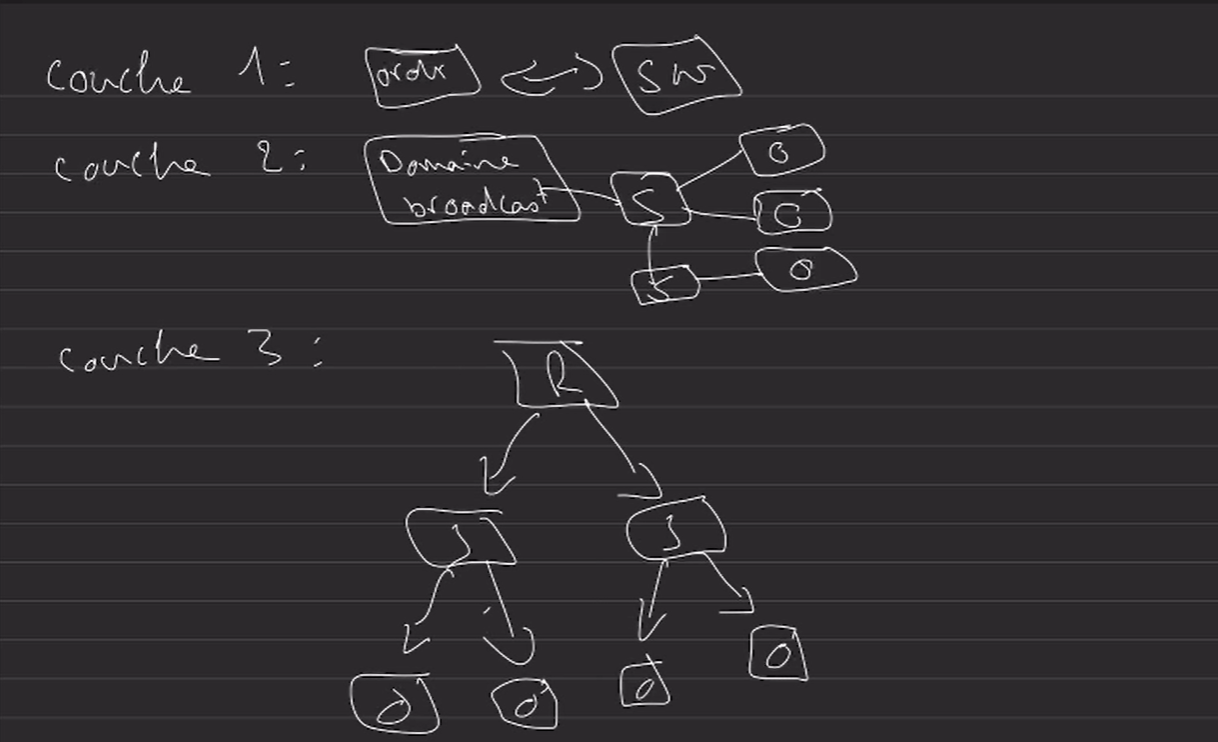 couche 1: ordi SW
couche 2: Domaine
broadcast S O
O
S O
couche 3:
R
S S
O O O O